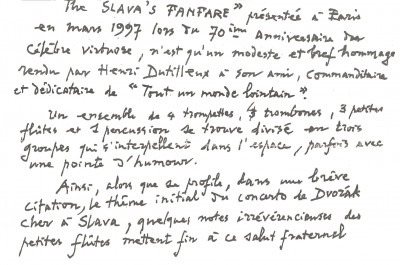 The SLAVA'S FANFARE" présentée à Paris
en mars 1997 lors du 70ème Anniversaire du
Célèbre virtuose, n'est qu'un modeste et bref hommage
rendu par Henri Dutilleux à son ami, commanditaire
et dédicataire de "Tout un monde lointain".
Un ensemble de 4 trompettes, 4 trombones, 3 petites
flûtes et 1 percussion se trouve divisé en trois
groupes qui s'interpellent dans l'espace, parfois avec
une pointe d'humour.
Ainsi, alors que se profile, dans une brève
citation, le thème initial du concerto de Dvořák
cher à Slava, quelques notes irrévérencieuses des
petites flûtes mettent fin à ce salut fraternel